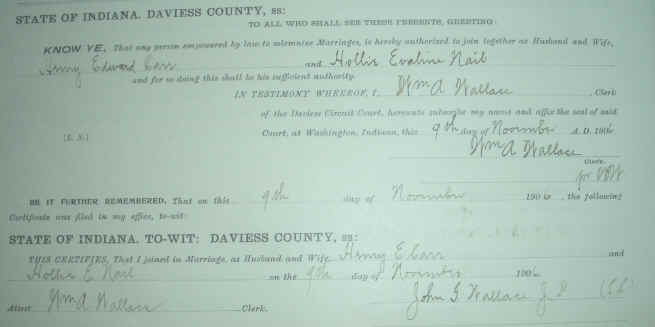 STATE OF INDIANA. DAVIESS COUNTY, ss:
TO ALL WHO SHALL SEE THESE PRESENTS, GREETING:
KNOW YE, That any person empowered by law to solemnize Marriages, is hereby authorized to join together as Husband and Wife,
Henry Edward Carr and Hollis Evaline Nail
and for so doing this shall be his sufficient authority.
IN TESTIMONY WHEREOF, I, Wm A Wallace, Clerk
of the Daviess Circuit Court, hereunto subscribe my name and affix the seal of said
(L. S.) Court, at Washington, Indiana, this 9th day of November A. D. 1906
Wm A Wallace
Clerk.
for
BE IT FURTHER REMEMBERED, That on this 9th day of November 1906, the following
Certificate was filed in my office, to-wit:
STATE OF INDIANA. TO-WIT: DAVIESS COUNTY, ss:
THIS CERTIFIES, That I joined in Marriage, as Husband and Wife, Henry E Carr and
Hollis E Nail on the 9th day of November 1906
John G Wallace J P (LS)
Attest Wm A Wallace Clerk.